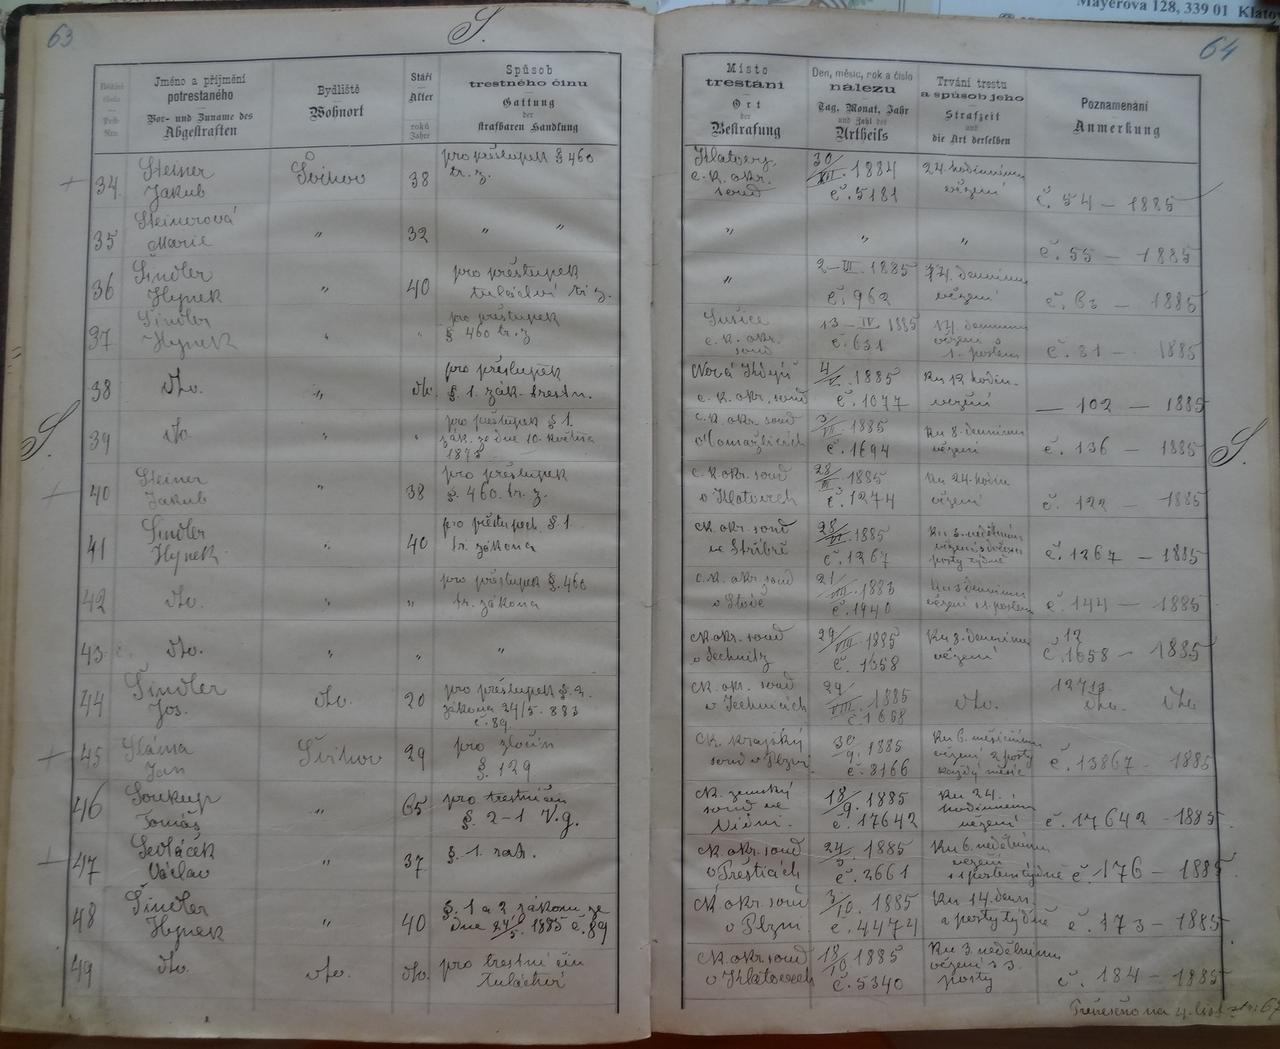 Mayerova 128, 339 01 Klatov
63
S.
64
Jméno a příjmení
potrestaného
Vor- und Zuname des
Abgestraften
Bydliště
Wohnort
Stáří
Alter
roků
Jahre
Spůsob
trestného činu
Gattung
der
strafbaren Handlung
Místo
trestání
Ort
der
Bestrafung
Den, měsíc, rok a číslo
nálezu
Tag, Monat, Jahr
und Zahl des
Urtheils
Trvání trestu
a spůsob jeho
Strafzeit
und
die Art derselben
Poznamenání
Anmerkung
34 Steiner Jakub Švihov 38 pro přestupek § 460 tr. z. Klatovy c. k. okr. soud 30/XII. 1884 č. 5181 24 hodinnému vězení č. 54 — 1885
35 Steinerová Marie " 32 " " " " " č. 55 — 1885
36 Šindler Hynek " 40 pro přestupek tuláctví tr. z. " 2—III. 1885 č. 962 denním vězení č. — 1885
37 Šindler Hynek " " pro přestupek § 460 tr. z. Sušice c. k. okr. soud 13—IV 1885 č. 631 vězení 1. postem č. 81 — 1885
38 dto. " dto. pro přestupek § 1. zák. trestn. Nová c. k. okr. soud 1885 č. 1077 Ku 12 hodin. vězení — 102 — 1885
39 dto " " pro přestupek § 1. zák. ze dne 10. května 1873 c. k. okr. soud v Domažlicích 1885 č. 1694 Ku 8. dennímu vězení č. 136 — 1885
40 Steiner Jakub " 38 pro přestupek § 460. tr. z. c. k. okr. soud v Klatovech 1885 č. 1274 Ku 24. hodin vězení č. 122 — 1885
41 Šindler Hynek " 40 pro přestupek § 1. tr. zákona ck. okr. soud ve Stříbře 1885 č. 1267 Ku 3. nedělnímu vězení posty týdně č. 1267 — 1885
42 dto. " " pro přestupek § 460 tr. zákona c. k. okr. soud v Stodě č. 1440 vězení s 1. postem č. 144 — 1885
43 dto. " " " ck. okr. soud v Jechnitz 29/VIII. 1885 č. 1658 Ku 3. dennímu vězení 12 č. 1658 — 1885
44 Šindler Jos. dto. 20 pro přestupek § 2. zákona 24/5. 883 č. 89. ck. okr. soud v Jechnicích 29/VIII. 1885 č. 1658 dto. dto. dto
45 Sláma Jan Švihov 29 pro zločin § 129 ck. krajský soud v Plzni 30/9. 1885 č. 8166 Ku 6. měsičnímu vězení 2 posty každý měsíc č. 13867 — 1885
46 Soukup Tomáš " 65 pro trestní čin § 2-1 V.g. ck. zemský soud ve Vídni. 18/9. 1885 č. 17642 Ku 24. hodinnému vězení č. 17642 — 1885.
47 Sedláček Václav " 37 § 1. zák. ck. okr. soud v Přešticích 1885 č. 2661 Ku 6. nedělnímu vězení s 1 postem týdně č. 176 — 1885
48 Šindler Hynek " 40 § 1 a 2 zákonu ze dne 24/5. 1885 č. 89 ck okr. soud v Plzni 3/10. 1885 č. 4474 Ku 14. denn. a posty týdně č. 173 — 1885
49 dto. dto. dto. pro trestní čin tuláctví ck. okr. soud v Klatovech 18/10 1885 č. 5340 Ku 3. nedělnímu vězení s 3. posty č. 184 — 1885
S.
S.
Přenešeno na 4. list str. 67